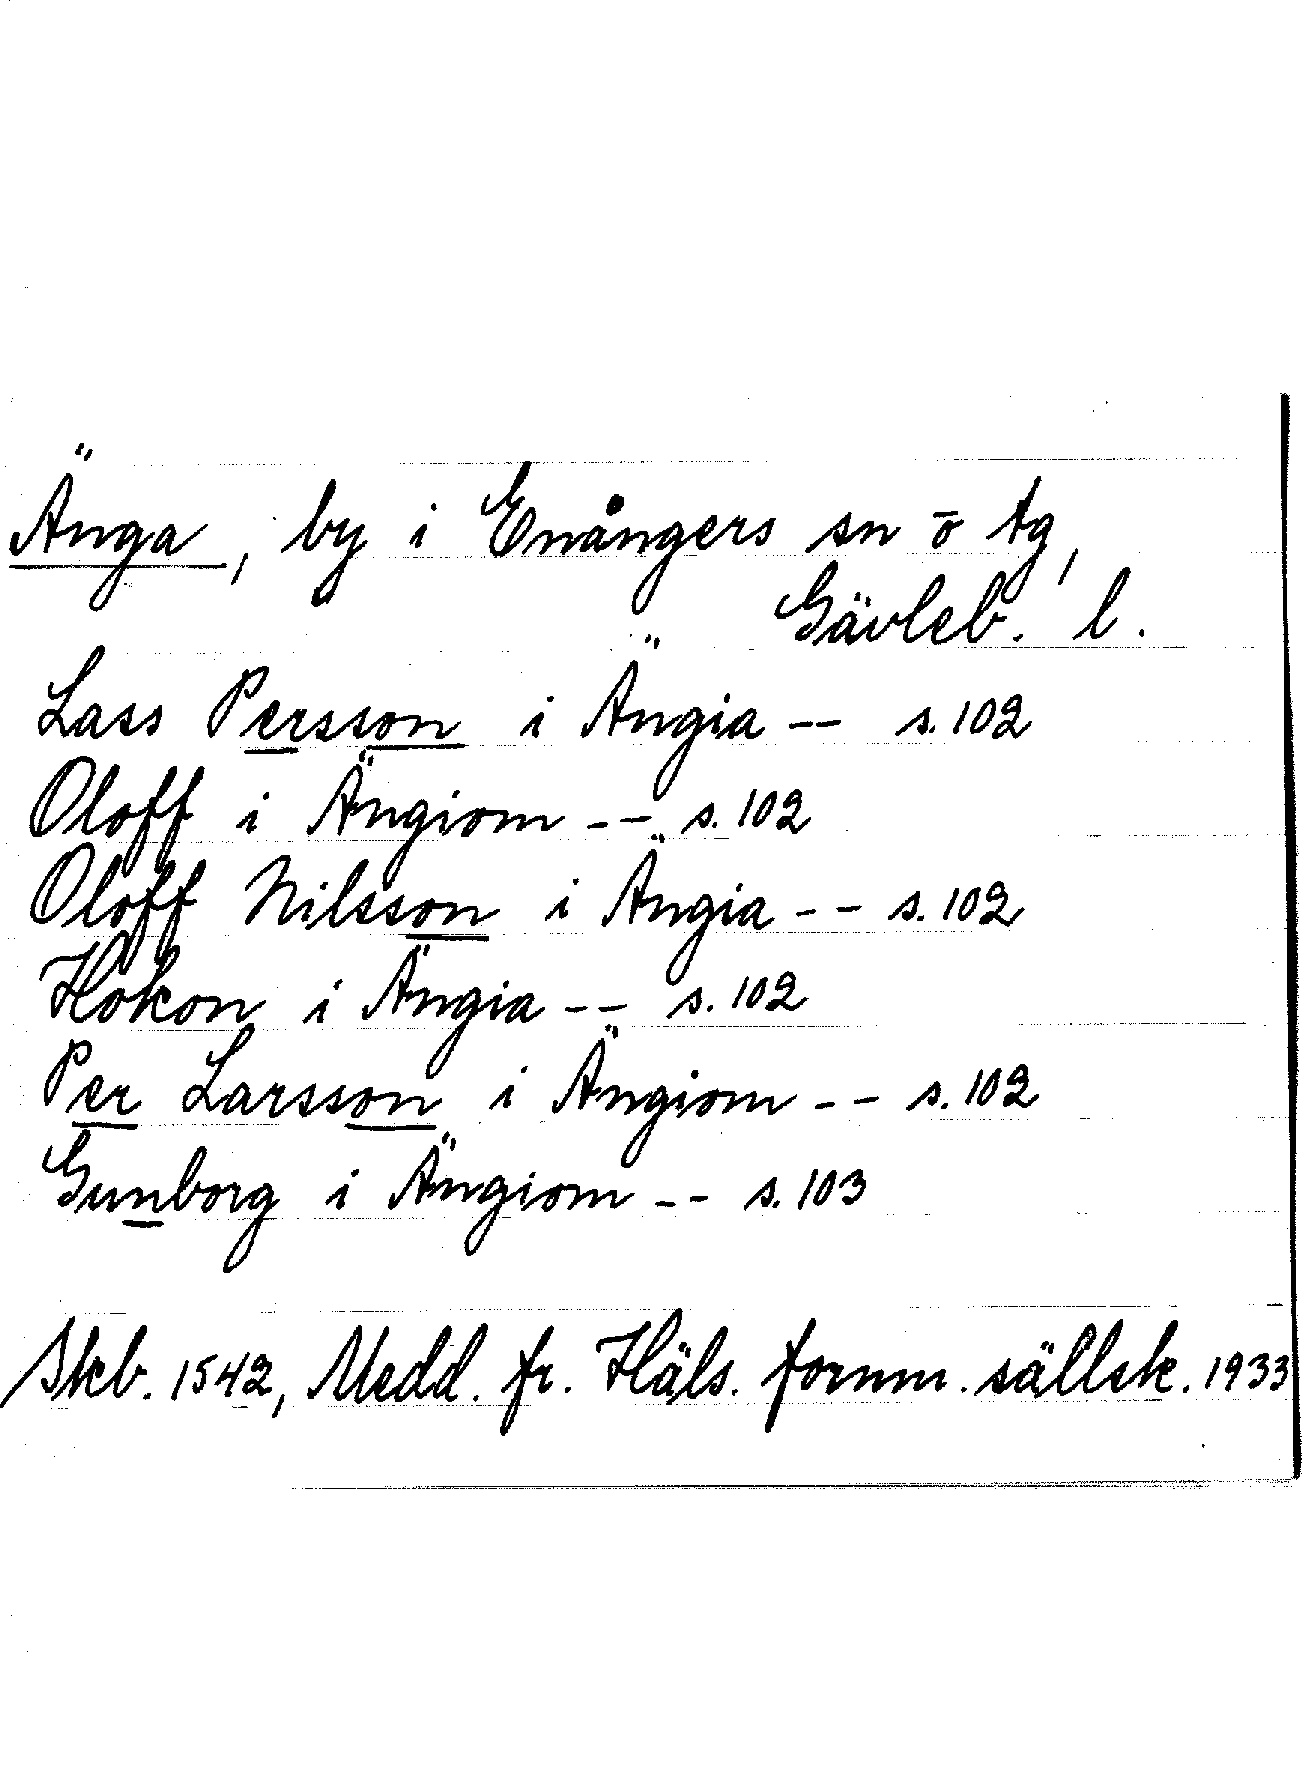 Änga, by i Enångers sn o tg,
Gävleb. l.
Lass Persson i Ängia -- s. 102
Oloff i Ängiom -- s. 102
Oloff Nilsson i Ängia -- s. 102
Hokon i Ängia -- s. 102
Per Larsson i Ängiom -- s. 102
Gunborg i Ängiom -- s. 103
Skb. 1542, Medd. fr. Häls. fornm. sällsk. 1933